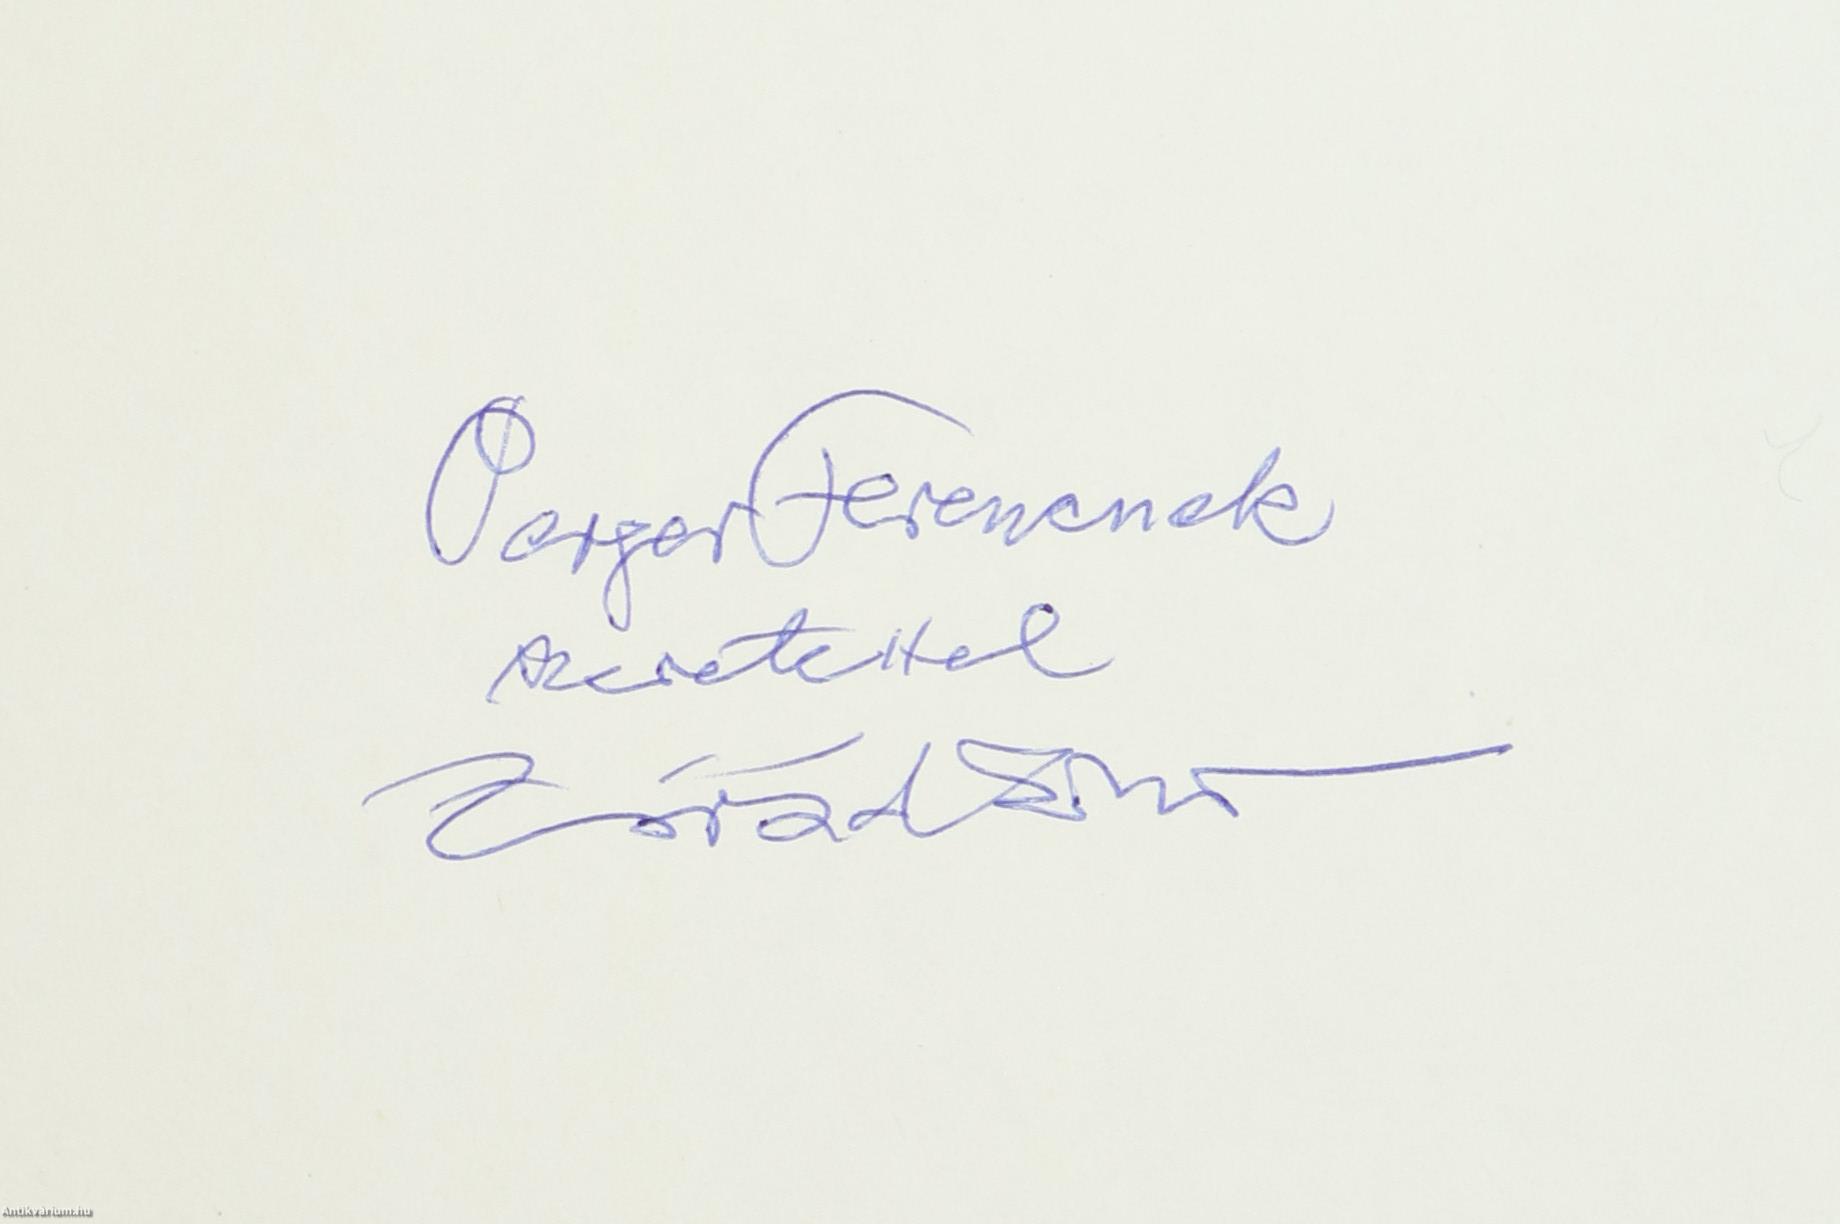 Perger Ferencnek
szeretettel
Zórád Ernő
Antikvárium.hu